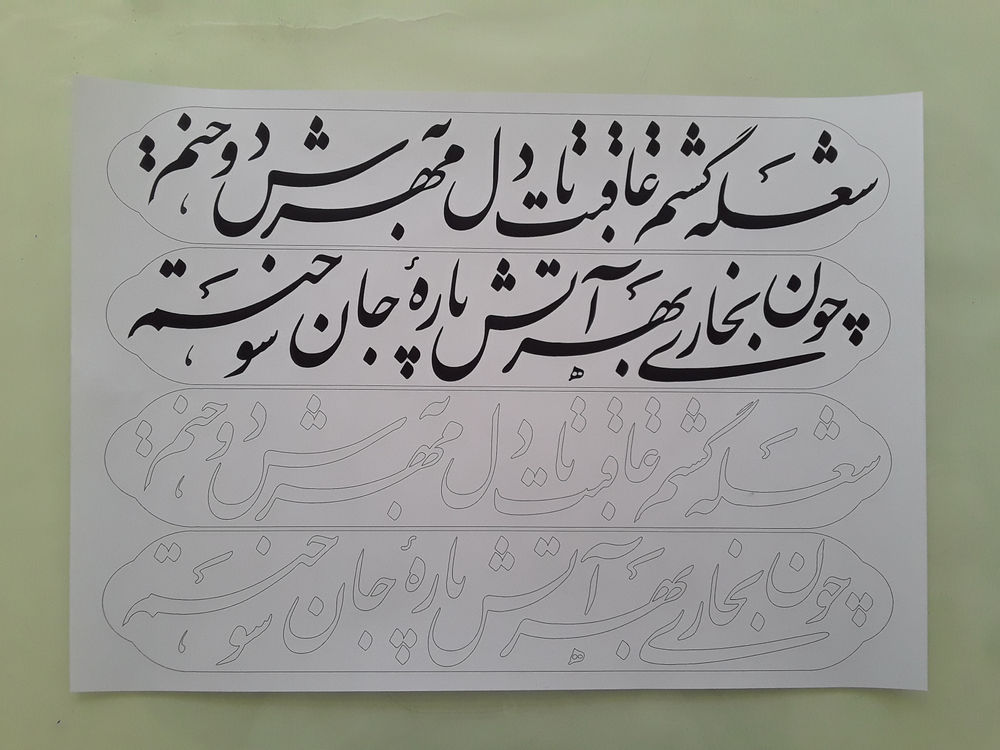 شعله گشتم عاقبت تا دل بمهرش دوختم
چون بخاری بهر آتش پارهٔ جان سوختم
شعله گشتم عاقبت تا دل بمهرش دوختم
چون بخاری بهر آتش پارهٔ جان سوختم